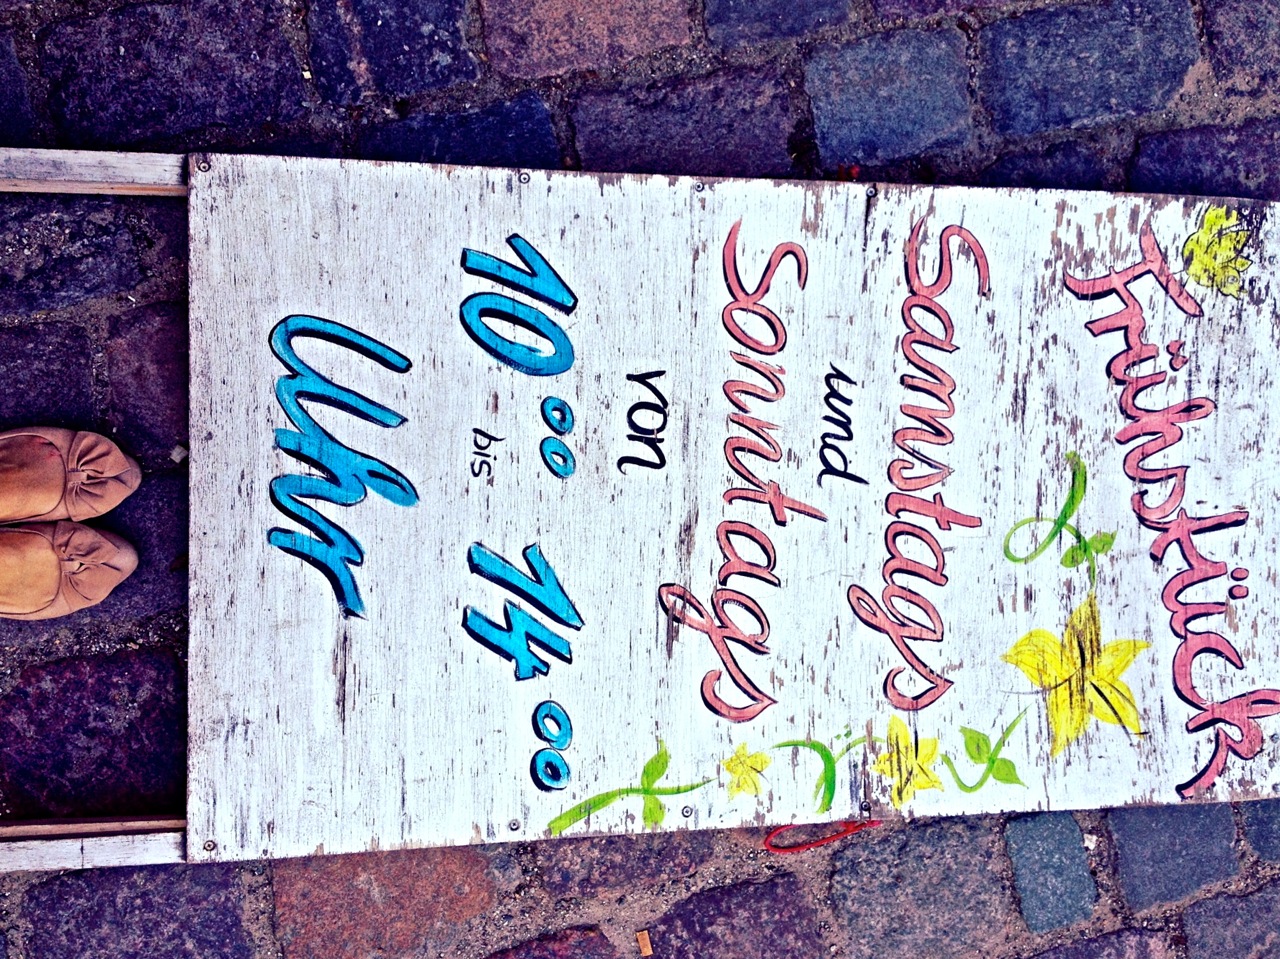 Frühstück
Samstags
und
Sonntags
von
10:00 bis 14:00
Uhr